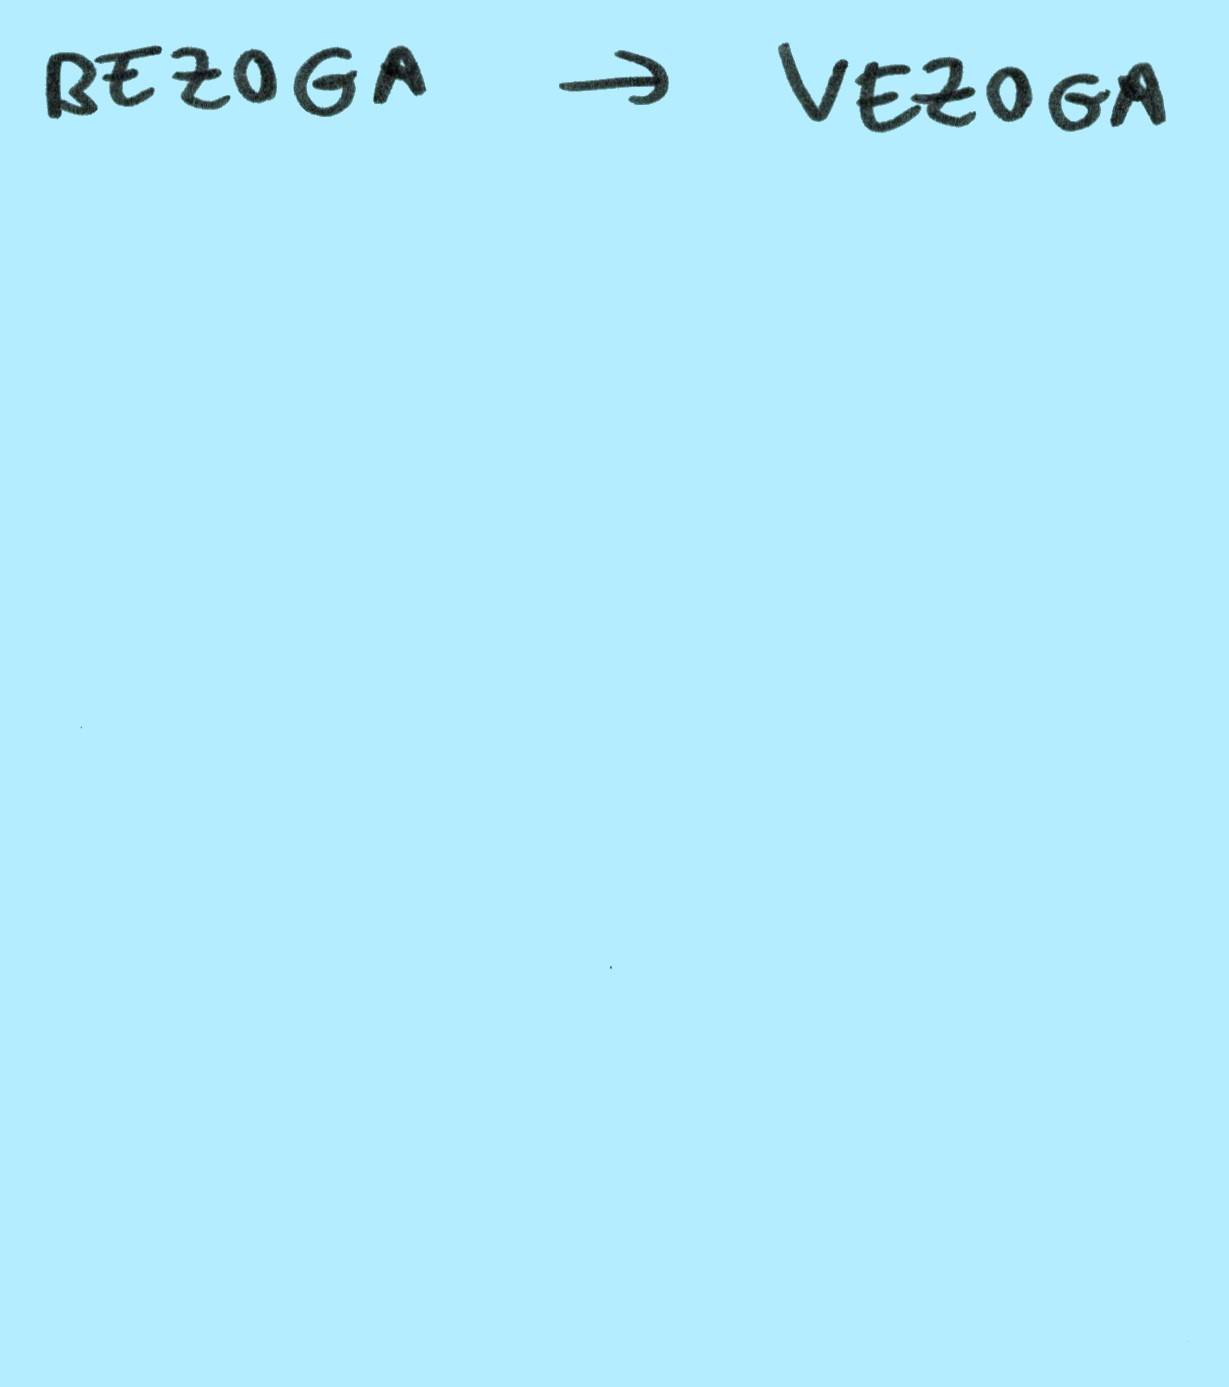 BEZOGA → VEZOGA